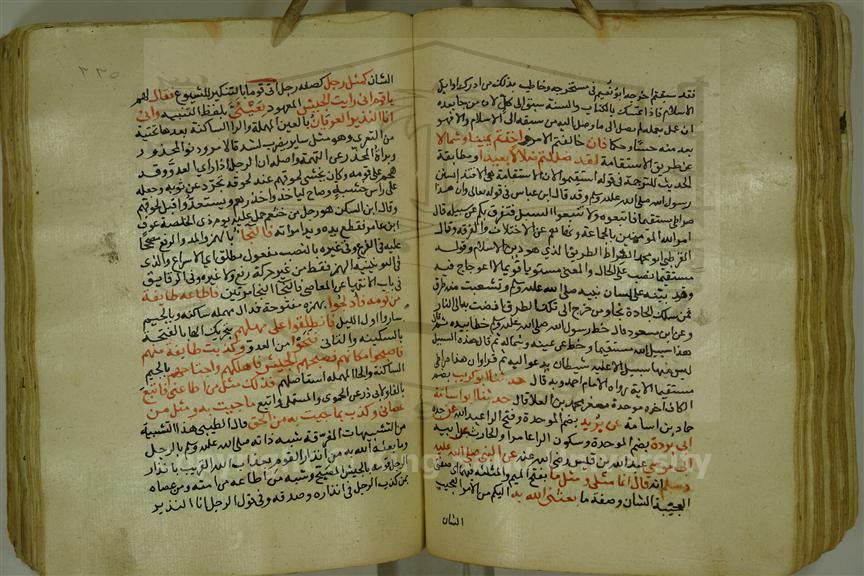 فقد سبقتم اخرجه ابو نعيم في مستخرجه وخاطب بذلك من ادرك اوايل
الاسلام فاذا تمسك بالكتاب والسنة سبق الى كل لان من جا بعده
ان عمل بعمله لم يصل الى ما وصل اليه من سبقه الى الاسلام والا فهو
بعد منه حسا وحكما فان خالفتم الامر واخذتم يمينا وشمالا
عن طريق الاستقامة لقد ضللتم ضلالا بعيدا ومطابقة
الحديث للترجمة في قوله استقيموا لان الاستقامة هي الاقتدا بسنن
رسول الله صلى الله عليه وسلم وقد قال ابن عباس في قوله تعالى وان هذا
صراطي مستقيما فاتبعوه ولا تتبعوا السبل فتفرق بكم عن سبيله قال
امر الله المومنين بالجماعة ونهاهم عن الاختلاف والفرقة وقال
القرطبي الصراط الطريق الذي هو دين الاسلام وقوله
مستقيما نصب على الحال والمعنى مستويا قويما لا اعوجاج فيه
وقد بينه على لسان نبيه صلى الله عليه وسلم وتشعبت منه طرق
فمن سلك الجادة نجا ومن خرج الى تلك الطرق افضت به الى النار
وعن ابن مسعود قال خط رسول الله صلى الله عليه وسلم خطا بيده ثم قال
هذا سبيل الله مستقيما وخط عن يمينه وشماله ثم قال هذه السبل
ليس منها سبيل الا عليه شيطان يدعو اليه ثم قرا وان هذا صراطي
مستقيما الاية رواه الامام احمد وبه قال حدثنا ابو كريب بضم
الكاف اخره موحدة مصغر محمد بن العلا قال حدثنا ابو اسامة
حماد بن اسامة عن بريد بضم الموحدة وفتح الرا عبد الله عن جده
ابي بردة بضم الموحدة وسكون الرا عامر او الحارث عن ابيه
ابي موسى عبد الله بن قيس رضي الله عنه عن النبي صلى الله عليه
وسلم انه قال انما مثلي ومثل ما بفتح الميم والمثلثه فيهما اي صفتي
العجيبة الشان وصفة ما بعثني الله به اليكم من الامر العجيب
الشان
٢٣٥
الشان كمثل رجل كصفة رجل اتى قوما بالتنكير للشيوع فقال لهم
يا قوم اني رايت الجيش المعهود بعيني بلفظ التثنيه واني
انا النذير العريان بالعين المهملة والرا الساكنة بعدها تحتية
من التعري وهو مثل ساير يضرب لشدة الامر ودنو المحذور
وبراة المحذر عن التهمة واصله ان الرجل اذا راى العدو وقد
هجم على قومه وكان يخشى لحوقهم عند لحوقه تجرد عن ثوبه وجعله
على راس خشبة وصاح لياخذوا حذرهم ويستعدوا قبل لحوقهم
وقال ابن السكن هو رجل من خثعم حمل عليه يوم ذي الخلصة عوف
ابن عامر فقطع يده ويد امراته فالنجا بالهمز والمد والرفع مصححا
عليه في الفرع وفي غيره بالنصب مفعول مطلق اي الاسراع والذي
في اليونينية الهمز فقط من غير حركة رفع ولا غيره وفي الرقايق
في باب الانتها عن المعاصي فالنجا النجا مرتين فاطاعه طايفة
من قومه فادلجوا بهمزة مفتوحة فدال مهملة ساكنة وبالجيم
ساروا اول الليل فانطلقوا على مهلهم بتحريك الها بالفتحة
بالسكينة والتاني فنجوا من العدو وكذبت طايفة منهم
فاصبحوا مكانهم فصبحهم الجيش فاهلكهم واجتاحهم بالجيم
الساكنة والحا المهملة استاصلهم فذلك مثل من اطاعني فاتبع
بالفا ولابي ذر عن الحموي والمستملي واتبع ما جيت به ومثل من
عصاني وكذب بما جيت به من الحق قال الطيبي هذا التشبيه
من التشبيهات المفرقة شبه ذاته صلى الله عليه وسلم بالرجل
وما بعثه الله به من انذار القوم بعذاب الله القريب بانذار
الرجل قومه بالجيش المصبح وشبه من اطاعه من امته ومن عصاه
بمن كذب الرجل في انذاره وصدقه وفي قول الرجل انا النذير